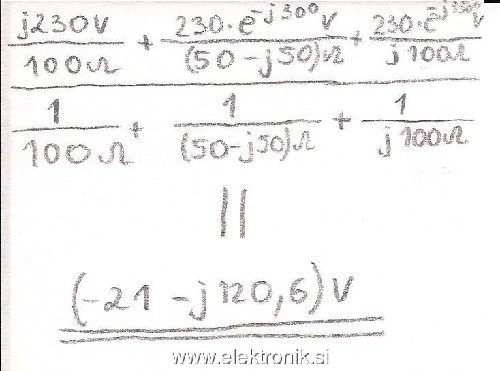 j230V/100Ω + 230·e^-j30°V/(50-j50)Ω + 230·e^-j150°V/j100Ω
1/100Ω + 1/(50-j50)Ω + 1/j100Ω
=
(-21 -j120,6)V
www.elektronik.si